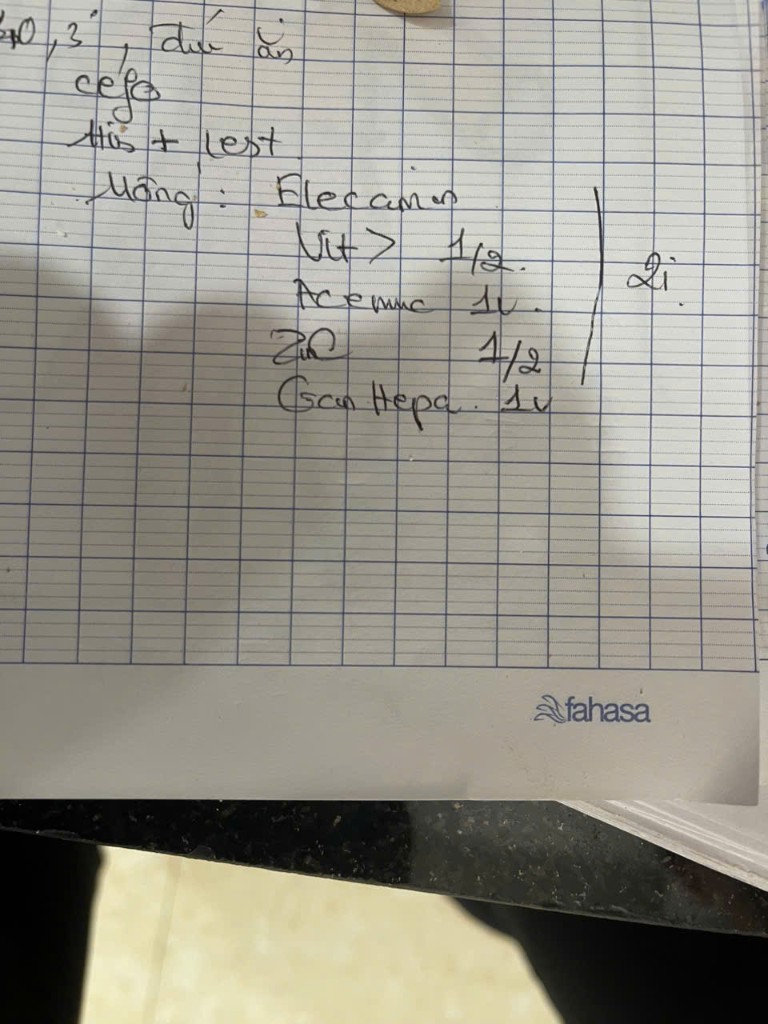 40,3, dứ ăn
cefo
His + lest
Uống: Elecamin
Vit > 1/2.
Acemuc 1v.
ZnC 1/2
2i.
Gan Hepa. 1v
fahasa